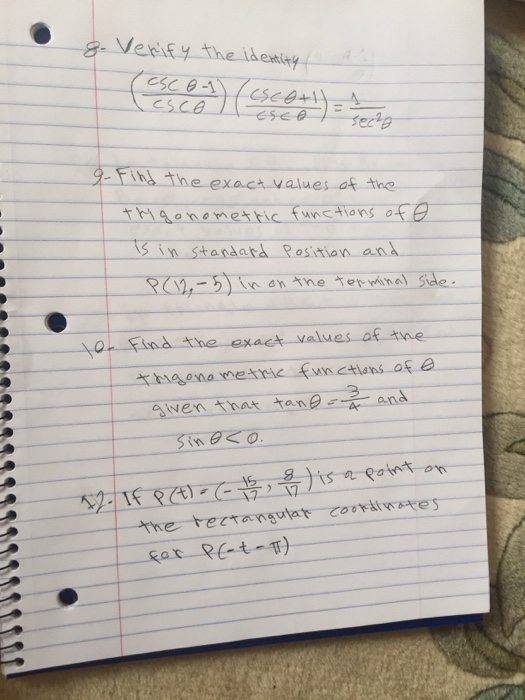 8- Verify the identity
(cscθ-1/cscθ)(cscθ+1/cscθ)=1/sec²θ
9- Find the exact values of the
trigonometric functions of θ
is in standard Position and
P(12,-5) in on the terminal side.
10- Find the exact values of the
trigonometric functions of θ
given that tanθ=3/4 and
sinθ<0.
12. If P(t)=(-15/17, 8/17) is a point on
the rectangular coordinates
for P(-t-π)